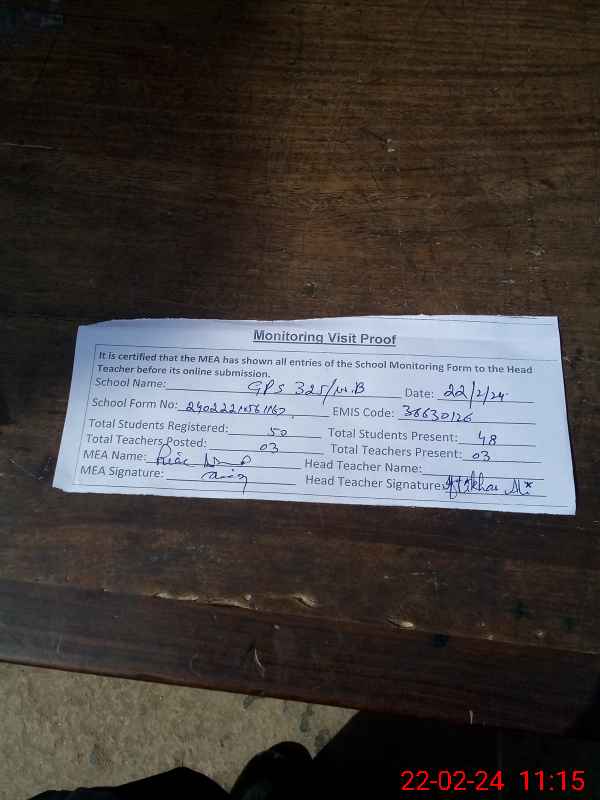 Monitoring Visit Proof
It is certified that the MEA has shown all entries of the School Monitoring Form to the Head
Teacher before its online submission.
School Name: GPS 325/W.B Date: 22/2/24
School Form No: EMIS Code: 36630126
Total Students Registered: 50 Total Students Present: 48
Total Teachers Posted: 03 Total Teachers Present: 03
MEA Name: Head Teacher Name:
MEA Signature: Head Teacher Signature: Iftikhar Ali
22-02-24 11:15